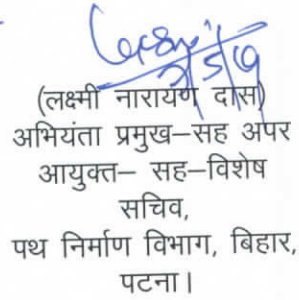 (लक्ष्मी नारायण दास)
अभियंता प्रमुख–सह अपर
आयुक्त– सह–विशेष
सचिव,
पथ निर्माण विभाग, बिहार,
पटना।